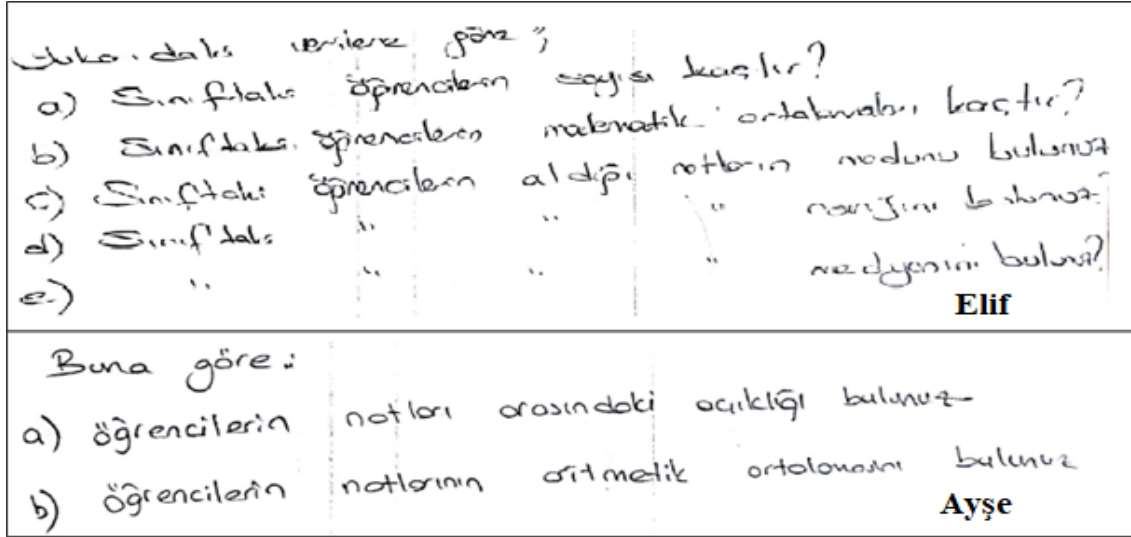 Yukarıdaki verilere göre;
a) Sınıftaki öğrencilerin sayısı kaçtır?
b) Sınıftaki öğrencilerin matematik ortalaması kaçtır?
c) Sınıftaki öğrencilerin aldığı notların modunu bulunuz
d) Sınıftaki " " " bulunuz.
e.) " " " " medyanını bulunuz?
Elif
Buna göre:
a) öğrencilerin notları arasındaki açıklığı bulunuz
b) öğrencilerin notlarının aritmetik ortalamasını bulunuz
Ayşe